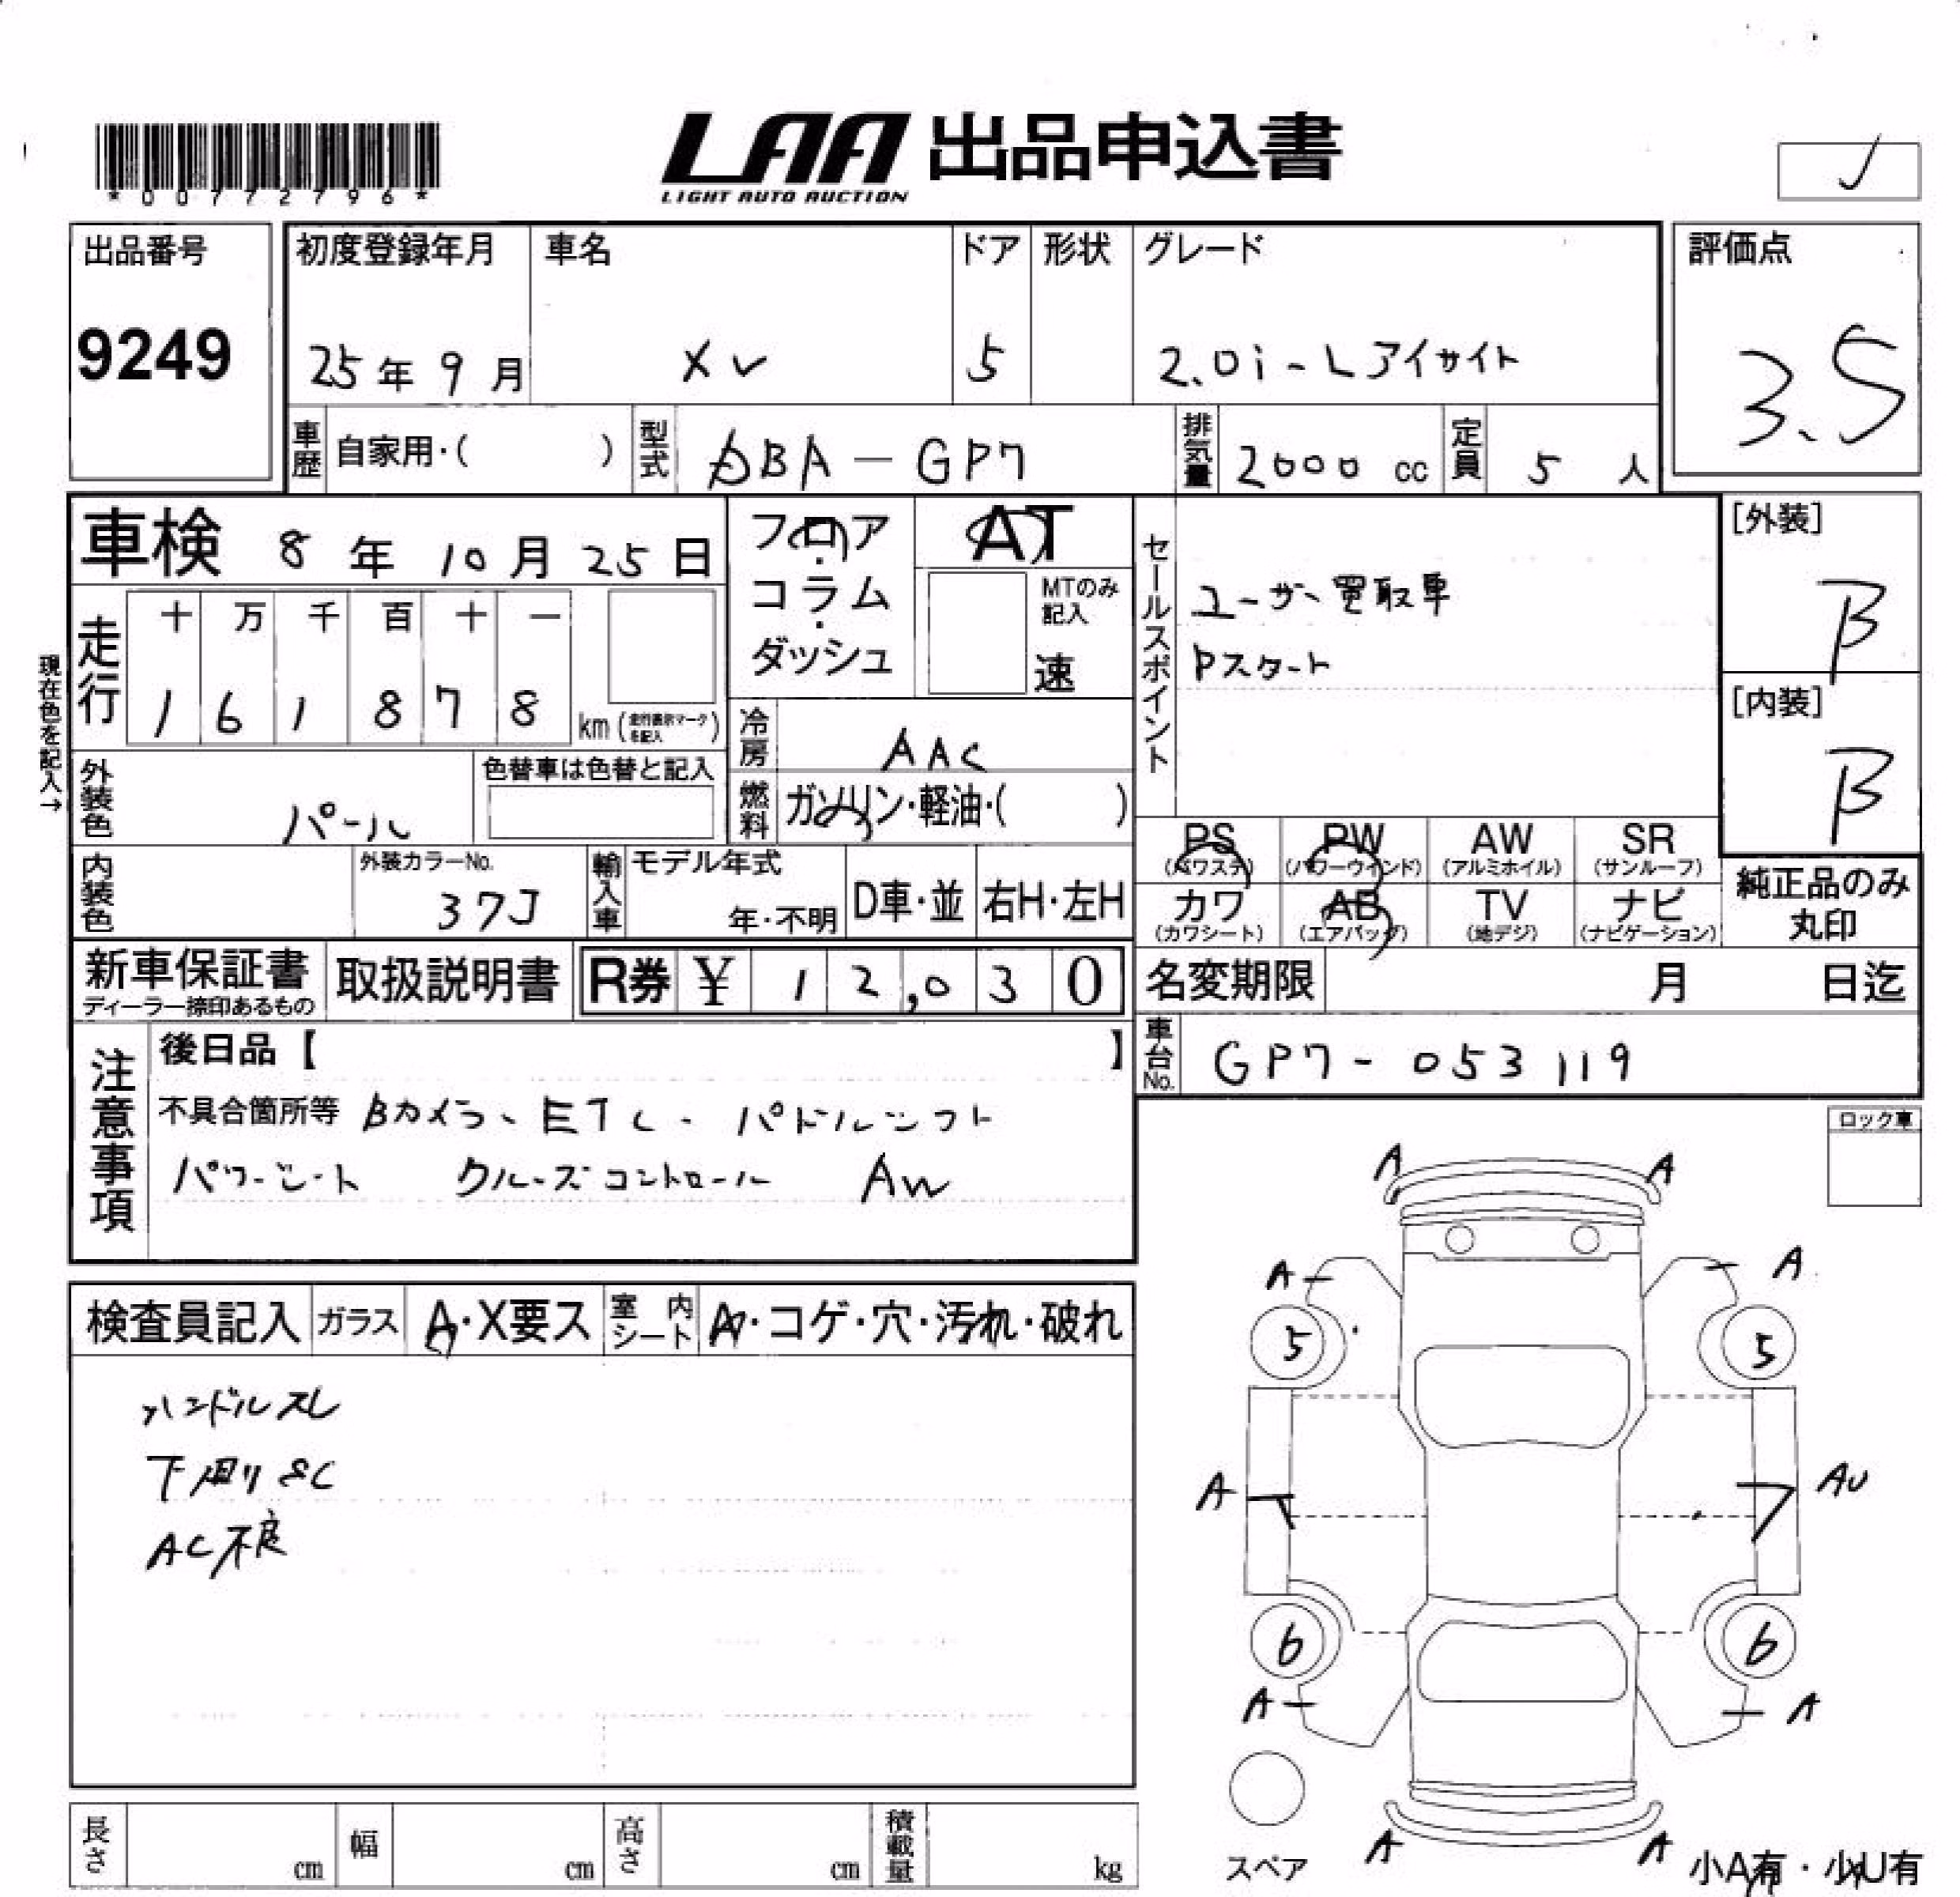 *00772796*
LAA 出品申込書
LIGHT AUTO AUCTION
出品番号
9249
初度登録年月
25年 9月
車名
XV
ドア
5
形状
グレード
2.0i-Lアイサイト
評価点
3.5
車歴
自家用・( )
型式
DBA-GP7
排気量
2000 cc
定員
5 人
車検 8年 10月 25日
フロア・コラム・ダッシュ
AT
MTのみ記入
速
セールスポイント
ユーザー買取車
Pスタート
[外装]
B
[内装]
B
現在色を記入→
走行
十 万 千 百 十 一
1 6 1 8 7 8
km (走行表示マークを記入)
冷房
AAC
外装色
パール
色替車は色替と記入
燃料
ガソリン・軽油・( )
PS (パワステ)
PW (パワーウインド)
AW (アルミホイル)
SR (サンルーフ)
カワ (カワシート)
AB (エアバッグ)
TV (地デジ)
ナビ (ナビゲーション)
純正品のみ丸印
内装色
外装カラーNo.
37J
輸入車
モデル年式
年・不明
D車・並
右H・左H
新車保証書
ディーラー捺印あるもの
取扱説明書
R券 ¥ 12,030
名変期限 月 日迄
注意事項
後日品【 】
不具合箇所等 Bカメラ、ETC、パドルシフト
パワーシート クルーズコントロール AW
車台No.
GP7-053119
ロック車
検査員記入
ガラス
A・X要ス
室内シート
A・コゲ・穴・汚れ・破れ
ハンドルスレ
下回りSC
AC不良
A A
A A
5 5
A AU
6 6
A A
スペア
A A
小A有・小U有
長さ cm
幅 cm
高さ cm
積載量 kg